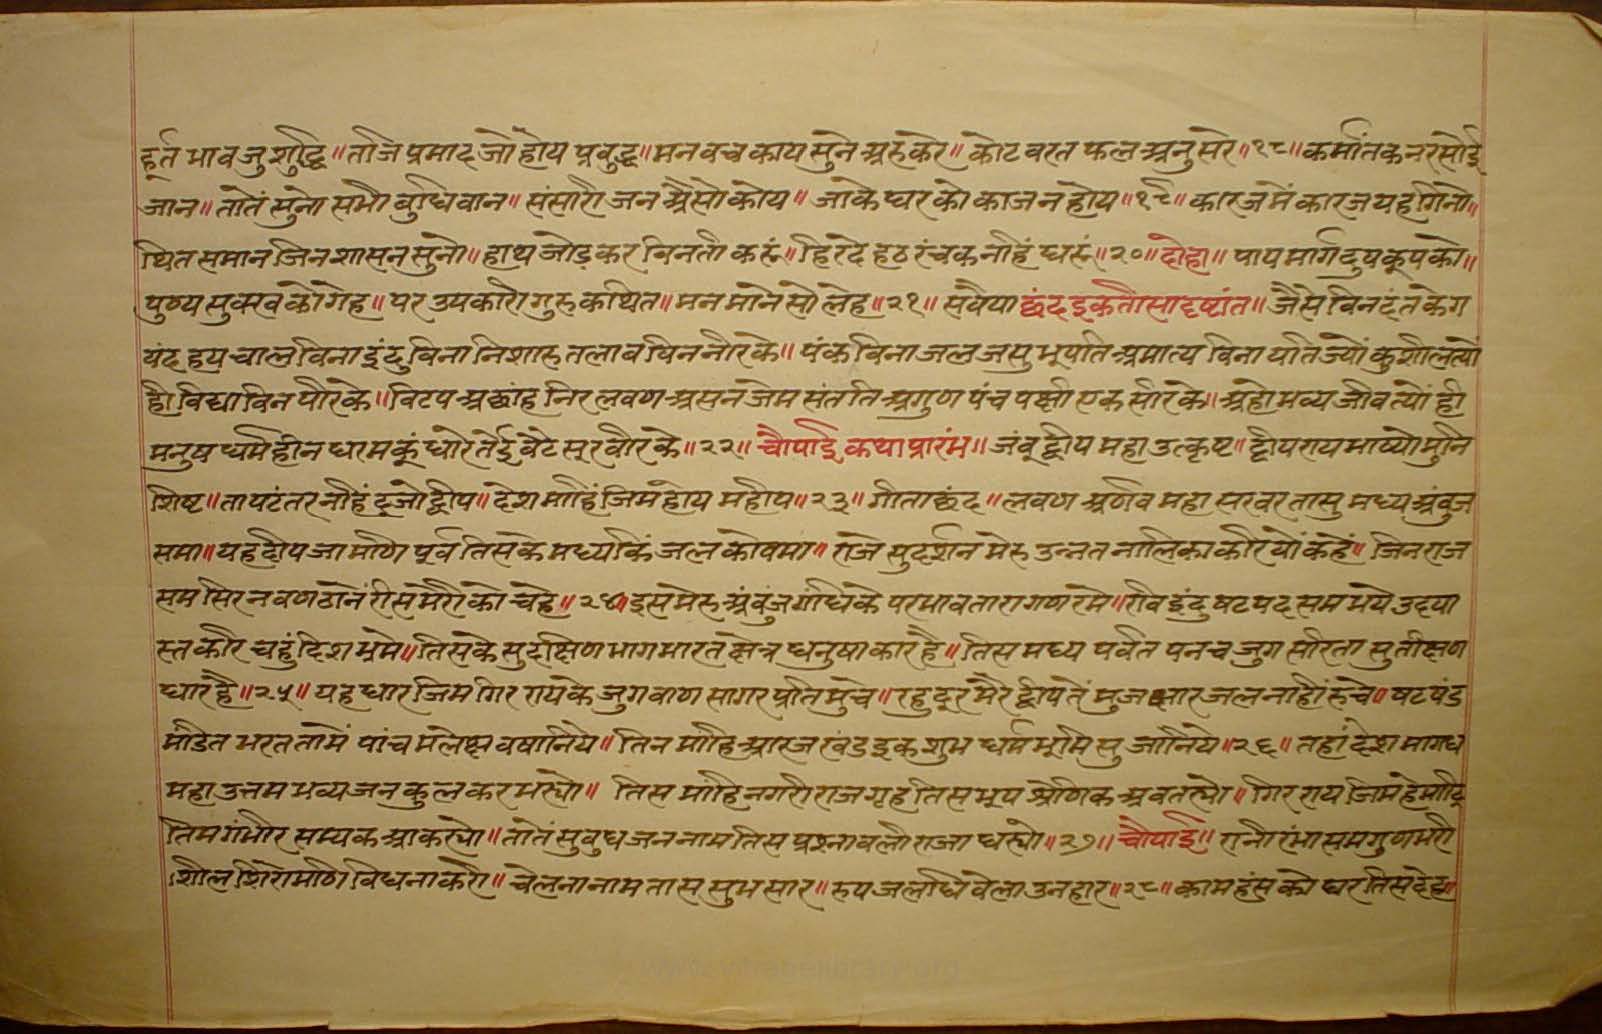 हूर्त भाव जु शुद्धि॥ तजि प्रमाद जो होय प्रबुद्ध॥ मन वच काय सुने अरु करे॥ कोट वरत फल अनुसरे॥१८॥ कर्मांतक नर सोई
जान॥ तातें सुनो सभी बुधिवान॥ संसारी जन अैसो कोय॥ जाके घर को काज न होय॥१९॥ कारज में कारज यह गिनो॥
थित समान जिन शासन सुनो॥ हाथ जोड़ कर विनती करूं॥ हिरदे हठ रंचक नाहिं धरूं॥२०॥ दोहा॥ पाप मार्ग दुष कूप को॥
पुण्य सुक्ख को गेह॥ पर उपकारी गुरु कथित॥ मन माने सो लेह॥२१॥ सवैया छंद इकतीसा दृष्टांत॥ जैसे विन दंत के ग
यंद हय चाल विना इंदु विना निशा रु तलाव विन नीर के॥ पंक विना जलज सु भूपति अमात्य विना यति ज्यों कुशील त्यों
ही विद्या विन पीर के॥ विटप अछांह निर लवण असन जेम संतति अगुण पंच पक्षी एक सीर के॥ अहो भव्य जीव त्यों ही
मनुष धर्महीन धाम कूं धोरे तेई बेटे सूर वीर के॥२२॥ चौपाई कथा प्रारंभ॥ जंबूद्वीप महा उत्कृष्ट॥ द्वीपराय भाष्यो मुनि
शिष्ट॥ ता पटंतर नहिं दूजो द्वीप॥ देश माहिं जिम होय महीप॥२३॥ गीता छंद॥ लवण अर्णव महा सरवर तासु मध्य अंबुज
समा॥ यह दीप जा मणि पूर्व तिसके मध्य किंजल कोषमा॥ राजे सुदर्शन मेरु उन्नत नालिका करि यों कहें॥ जिनराज
सम सिर नवण ठानें रीस मेरी को चहे॥२४॥ इस मेरु अंबुज गंधि के परभाव तारागण रमे॥ रवि इंदु षट पद सम भये उदया
स्त करि चहुं दिश भ्रमे॥ तिसके सुदक्षिण भाग भारत क्षेत्र धनुषाकार है॥ तिस मध्य पर्वत पनच जुग सरिता सुतीक्षण
धार है॥२५॥ यह धार जिम गिर राय के जुग वाण सागर प्रति मुचे॥ रहु दूर मेरे द्वीप तें मुज क्षार जल नाहीं रुचे॥ षट षंड
मंडित भरत तामें पांच मलेक्ष वषानिये॥ तिन माहि आरज खंड इक शुभ धर्म भूमि सु जानिये॥२६॥ तहां देश मागध
महा उत्तम भव्य जन कुल कर भर्यो॥ तिस मांहि नगरी राजगृह तिस भूप श्रेणिक अवतर्यो॥ गिर राय जिम हेमाद्रि
तिम गंभीर सम्यक आकर्यो॥ तातें सुबुध जन नाम तिस प्रश्नावली राजा धर्यो॥२७॥ चौपाई॥ रानी रंभा सम गुण भरी
शील शिरोमणि विधना करी॥ चेलना नाम तास सुभ सार॥ रूप जलधि वेला उनहार॥२८॥ काम हंस को घर तिस देह॥